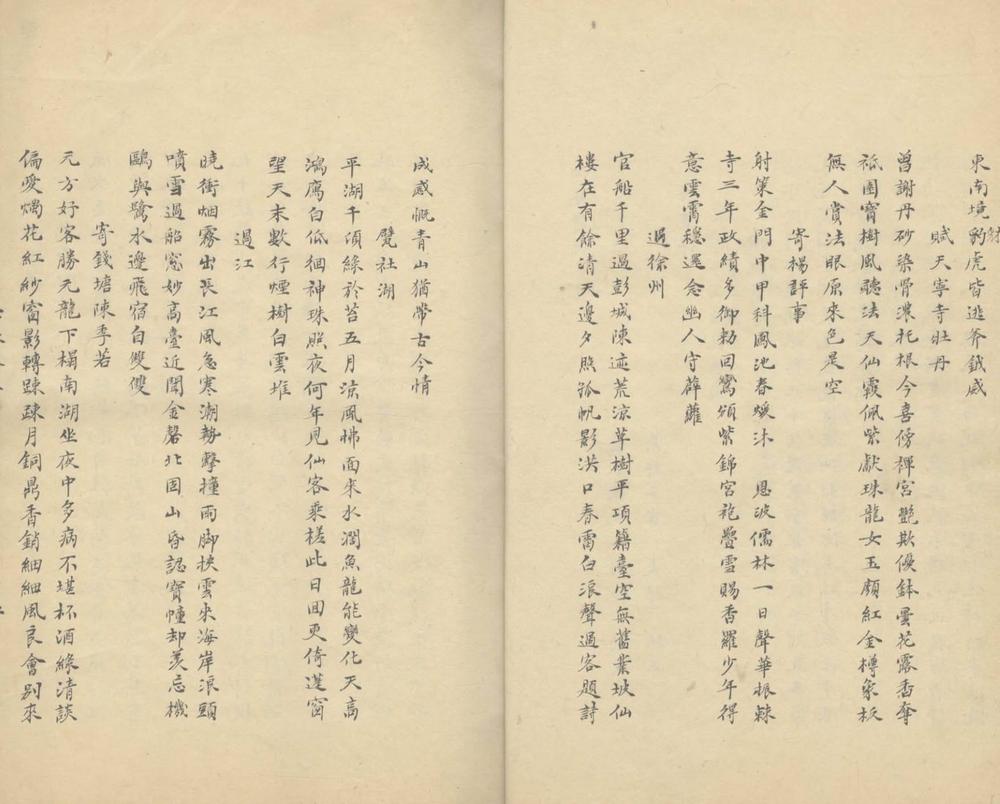 東南境豹虎皆逃斧鉞威
賦天寧寺牡丹
曾謝丹砂染骨濃托根今喜傍禪宮艷欺優鉢曇花露香奪
祇園寶樹風聽法天仙霞佩紫獻珠龍女玉顏紅金樽象板
無人賞法眼原來色是空
寄楊評事
射策金門中甲科鳳池春暖沐 恩波儒林一日聲華振棘
寺三年政績多御勅回鸞頒紫錦宮袍疊雪賜香羅少年得
意雲霄穩還念幽人守薜蘿
過徐州
官船千里過彭城陳迹荒涼草樹平項籍臺空無舊業坡仙
樓在有餘清天邊夕照孤帆影洪口春雷白浪聲過客題詩
成感慨青山猶帶古今情
甓社湖
平湖千頃綠於苔五月涼風拂面來水濶魚龍能變化天高
鴻鴈自低徊神珠照夜何年見仙客乘槎此日回更倚篷窗
望天末數行煙樹白雲堆
過江
曉衝烟霧出長江風急寒潮勢擊撞雨脚挾雲來海岸浪頭
噴雪過船窓妙高臺近聞金磬北固山昏認寶幢却羨忘機
鷗與鷺水邊飛宿自雙雙
寄錢塘陳季若
元方好客勝元龍下榻南湖坐夜中多病不堪杯酒綠清談
偏愛燭花紅紗窗影轉踈踈月銅鼎香銷細細風良會別來